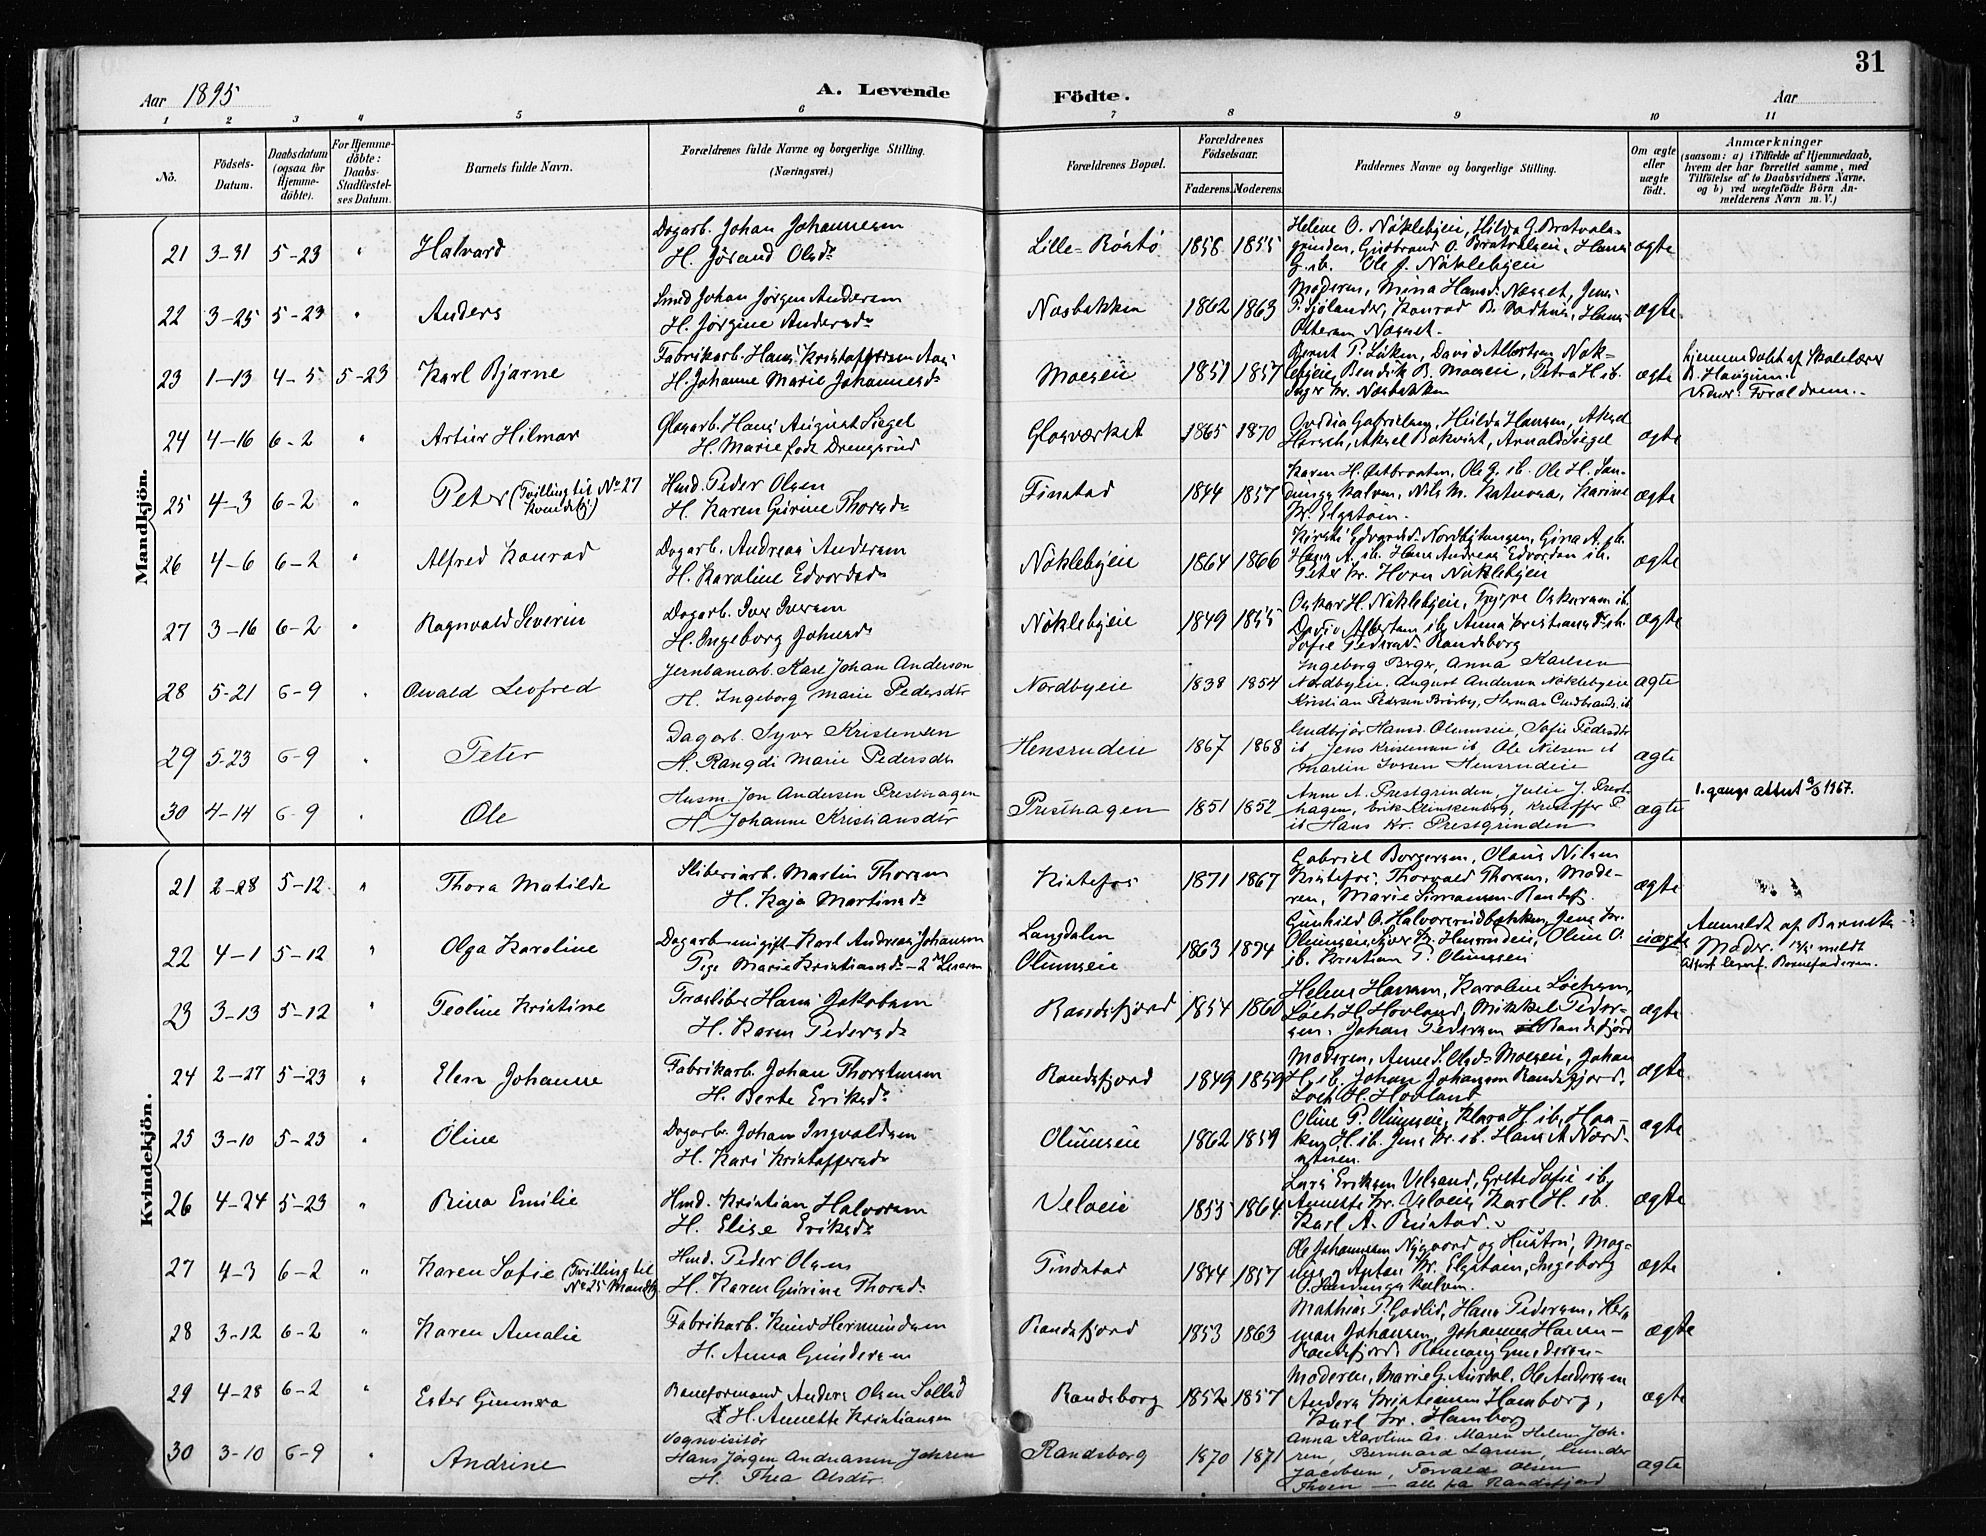 31
Aar 1895
A. Levende
Födte.
Aar
1 2 3 4 5 6 7 8 9 10 11
No.
Födsels-Datum.
Daabsdatum (ogsaa for Hjemme-döbte).
For Hjemme-döbte: Daabs-Stadfæstelses Datum.
Barnets fulde Navn.
Forældrenes fulde Navne og borgerlige Stilling.
(Næringsvei.)
Forældrenes Bopæl.
Forældrenes Födselsaar.
Faderens. Moderens.
Faddernes Navne og borgerlige Stilling.
Om ægte eller uægte födt.
Anmærkninger
(saasom: a) i Tilfælde af Hjemmedaab,
hvem der har forrettet samme, med
Tilföielse af to Daabsvidners Navne,
og b) ved uægtefödte Börn An-
melderens Navn m. V.)
Mandkjön.
21 3-31 5-23 " Halvard
Dagarb. Johan Johannesen
H. Jörand Olsdr
Lille-Röstö 1858 1855
Ole J. Nöklebyeie
ægte
22 3-25 5-23 " Anders
Smed Johan Jörgen Andersen
H. Jörgine Andersdr
Næsbakken 1862 1863
Moderen, Mina Hansd. Næsset, Jens
Pettersen Næsset.
ægte
23 1-13 4-5 5-23 Karl Bjarne
Fabrikarb. Hans Kristoffersen
H. Johanne Marie Johannesdr
Moeseie 1851 1857
Bernt P. Löken, David Albertsen Nök-
lebyeie, Bendik B. Moeseie, Petra H ib.
Inger Kr. Næsbakken
ægte
hjemmedöbt af Skolelærer
B. Haugum.
Vidner: Forældrene.
24 4-16 6-2 " Artur Hilmar
Glasarb. Hans August Siegel
H. Marie föd Drengsrud
Glasværket 1865 1870
Ovidia Gabrielsen, Hulda Hansen, Aksel
Hersch, Aksel Bokvist, Arnold Siegel
ægte
25 4-3 6-2 " Peter (Tvilling til No 27
Kvindekj.)
Hmd. Peder Olsen
H. Karen Gurine Thorsdr
Finstad 1844 1857
Karen H. Østbraaten, Ole G. ib. Ole H. San-
ægte
26 4-6 6-2 " Alfred Konrad
Dagarb. Andreas Andersen
H. Karoline Edvardsdr
Nöklebyeie 1864 1866
Hans A. ib. Hans Andreas Edvardsen ib.
Peter Kr. Horn Nöklebyeie
ægte
27 3-16 6-2 " Ragnvald Severin
Dagarb. Iver Iversen
H. Ingeborg Johnsdr
Nöklebyeie 1849 1855
Oskar H. Nöklebyeie,
Sofie Pedersd. Randsborg
ægte
28 5-21 6-9 " Osvald Leofred
Jernbanearb. Karl Johan Anderson
H. Ingeborg Marie Pedersdtr
Nordbyeie 1838 1854
Ingeborg Berger, Anna Karlsen
Nordbyeie, August Andersen Nöklebyeie
Kristian Pedersen Brörby, Herman Gudbrands. ib
ægte
29 5-23 6-9 " Peter
Dagarb. Syver Kristensen
H. Rangdi Marie Pedersdtr
Hensrudeie 1867 1868
Gudbjör Hansd. Olumseie, Sofie Pedersdtr
ib Jens Kristensen ib, Ole Nilsen ib
Martin Iversen Hensrudeie
ægte
30 4-14 6-9 " Ole
Husm. Jon Andersen Presthagen
H. Johanne Kristiansdtr
Presthagen 1851 1852
Anne A. Prestgrinden, Julie J. Prest-
hagen, Erik Klinkenberg, Kristoffer P.
ib Hans Kr. Prestgrinden
ægte
1. gangs attest 9/3 1967.
Kvindekjön.
21 2-28 5-12 " Thora Matilde
Sliberiarb. Martin Thorsen
H. Kaja Martinsdr
Kistefos 1871 1867
Gabriel Borgersen, Olaus Nilsen
Kistefos, Thorvald Thorsen, Mode-
ren, Marie Simonsen Randsfj.
ægte
22 4-1 5-12 " Olga Karoline
Dagarb. ungift Karl Andreas Johansen
Pige Marie Kristiansdr - 2den Leierm
Langdalen
Olumseie
1863 1874
Gunhild O. Halvorsrudbakken, Jens Kr.
Olumseie, Syver Kr. Hensrudeie, Oline O.
ib. Kristian P. Olumseie
uægte
Anmeldt af Barnets
Moder.
23 3-13 5-12 " Teoline Kristine
Træsliber Hans Jakobsen
H. Karen Pedersdr
Randsfjord 1854 1860
Helene Hansen, Karoline
H. Hovland, Mikkel Peder-
sen, Johan Pedersen Randsfjord
ægte
24 2-27 5-23 " Elen Johanne
Fabrikarb. Johan Thorstensen
H. Berte Eriksdr
Randsfjord 1849 1859
Moderen, Anne S. Olsds Moeseie, Johan
H. ib. Johan Johansen Randsfjord,
H. Hovland
ægte
25 3-10 5-23 " Oline
Dagarb. Johan Ingvaldsen
H. Kari Kristoffersdr
Olumseie 1862 1859
Oline P. Olumseie, Klara H. ib, Haa-
ken H. ib. Jens Kr. ib. Hans A Nord-
ægte
26 4-24 5-23 " Rina Emilie
Hmd. Kristian Halvorsen
H. Elise Eriksdr
Veloeie 1853 1864
Lars Eriksen Velsand, Grete Sofie ib,
Annette Kr. Veloeie, Karl H. ib.
Karl A.
ægte
27 4-3 6-2 " Karen Sofie (Tvilling til
No 25 Mandkj)
Hmd. Peder Olsen
H. Karen Gurine Thorsdr
Finstad 1844 1857
Ole Johannesen Nygaard og Hustru, Mag-
Anton Kr. Elgstöen, Ingeborg
ægte
28 3-12 6-2 " Karen Amalie
Fabrikarb. Knud Hermundsen
H. Anna Gundersen
Randsfjord 1853 1863
Mathias P. Godlid, Hans Pedersen, Her-
man Johansen, Johanna Hansen
Randsfjord, Gundersen
ægte
29 4-28 6-2 " Ester Gunnera
Baneformand Anders Olsen Sollid
H. Annette Kristiansen
Randsborg 1852 1857
Moderen, Marie G. Aurdal, Ole Andersen
Anders Kristiansen Hamborg,
Karl Kr. Hamborg
ægte
30 3-10 6-9 " Andrine
Vognvisitör
Hans Jörgen Andreasen Johren
H. Thea Olsdtr.
Randsborg 1870 1871
Anna Karoline Ås. Maren Helene Joh-
ren, Bernhard Larsen, Gunder
Jacobsen, Torvald Olsen
Thoen — alle på Randsfjord
ægte